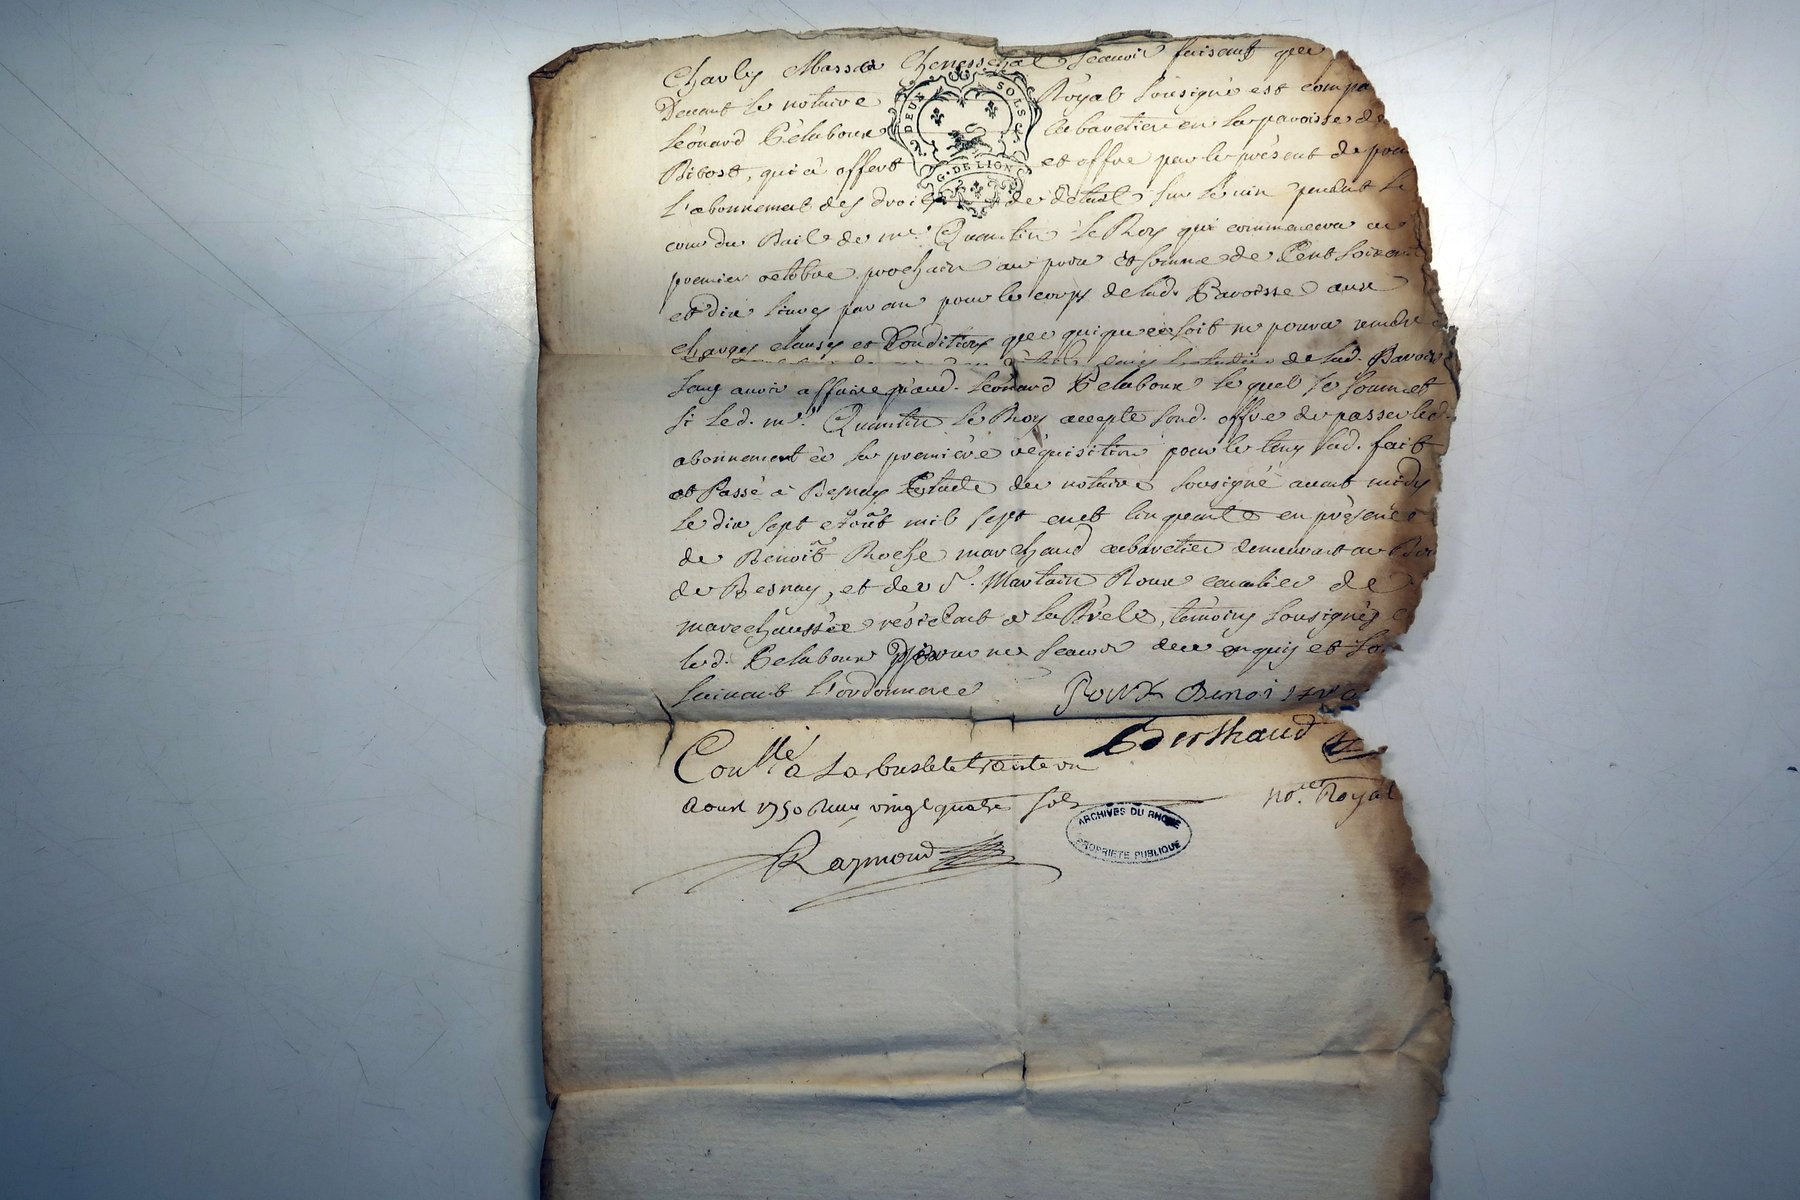 Charles Masson Chenessenal Scavoir faisont que
Devant le notaire Royal Sousigné est compa
Léonard Pelaboux Cabaretier en la paroisse de
Bibost, qui à offert et offre par le présent de pour
L'abonnement des droits de détail sur le vin pendant le
cour du Bail de mr. Quentin Le Roy qui commencera au
premier octobre prochain au prix et somme de Cent Soixante
et dix livres par an pour le corps de lad. Paroisse aux
charges clauses et Conditions que qui que ce soit ne poura vendre
de lad. Parois
Sans avoir affaire q'aud. Léonard Pelaboux lequel se soumet
si led. mr. Quentin Le Roy accepte sond. offre de passer led.
abonnement à la première réquisition pour le tems sud. fait
et Passé à Besnay Estude du notaire Sousigné avant midy
le dix sept aoüt mil sept cent cinquante en présence
de Benoît Roche marchand cabaretier demeurant au Bou
de Besnay, et de Sr. Martain Roux cavalier de
marechaussée résident à la Brêle, témoins Sousignés
led. Pelaboux pour ne scavoir de ce enquis et So
suivant l'ordonnance Roux Benoi
Berthaud
Conllé à Larbresle le trante un
Aoust 1750 Reçu vingt quatre sols
nore. Royal
Raymond
DEUX SOLS
G. DE LION
ARCHIVES DU RHONE
PROPRIETE PUBLIQUE